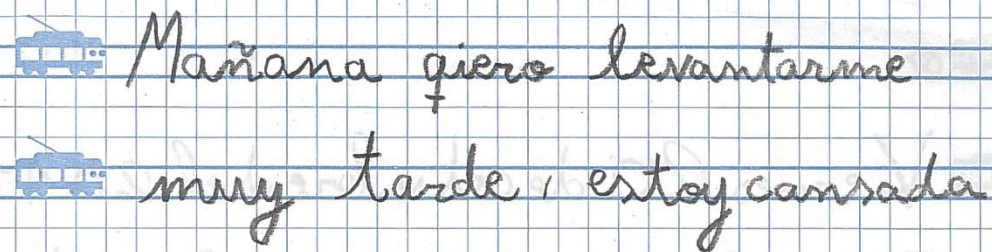 Mañana qiero levantarme
muy tarde, estoy cansada